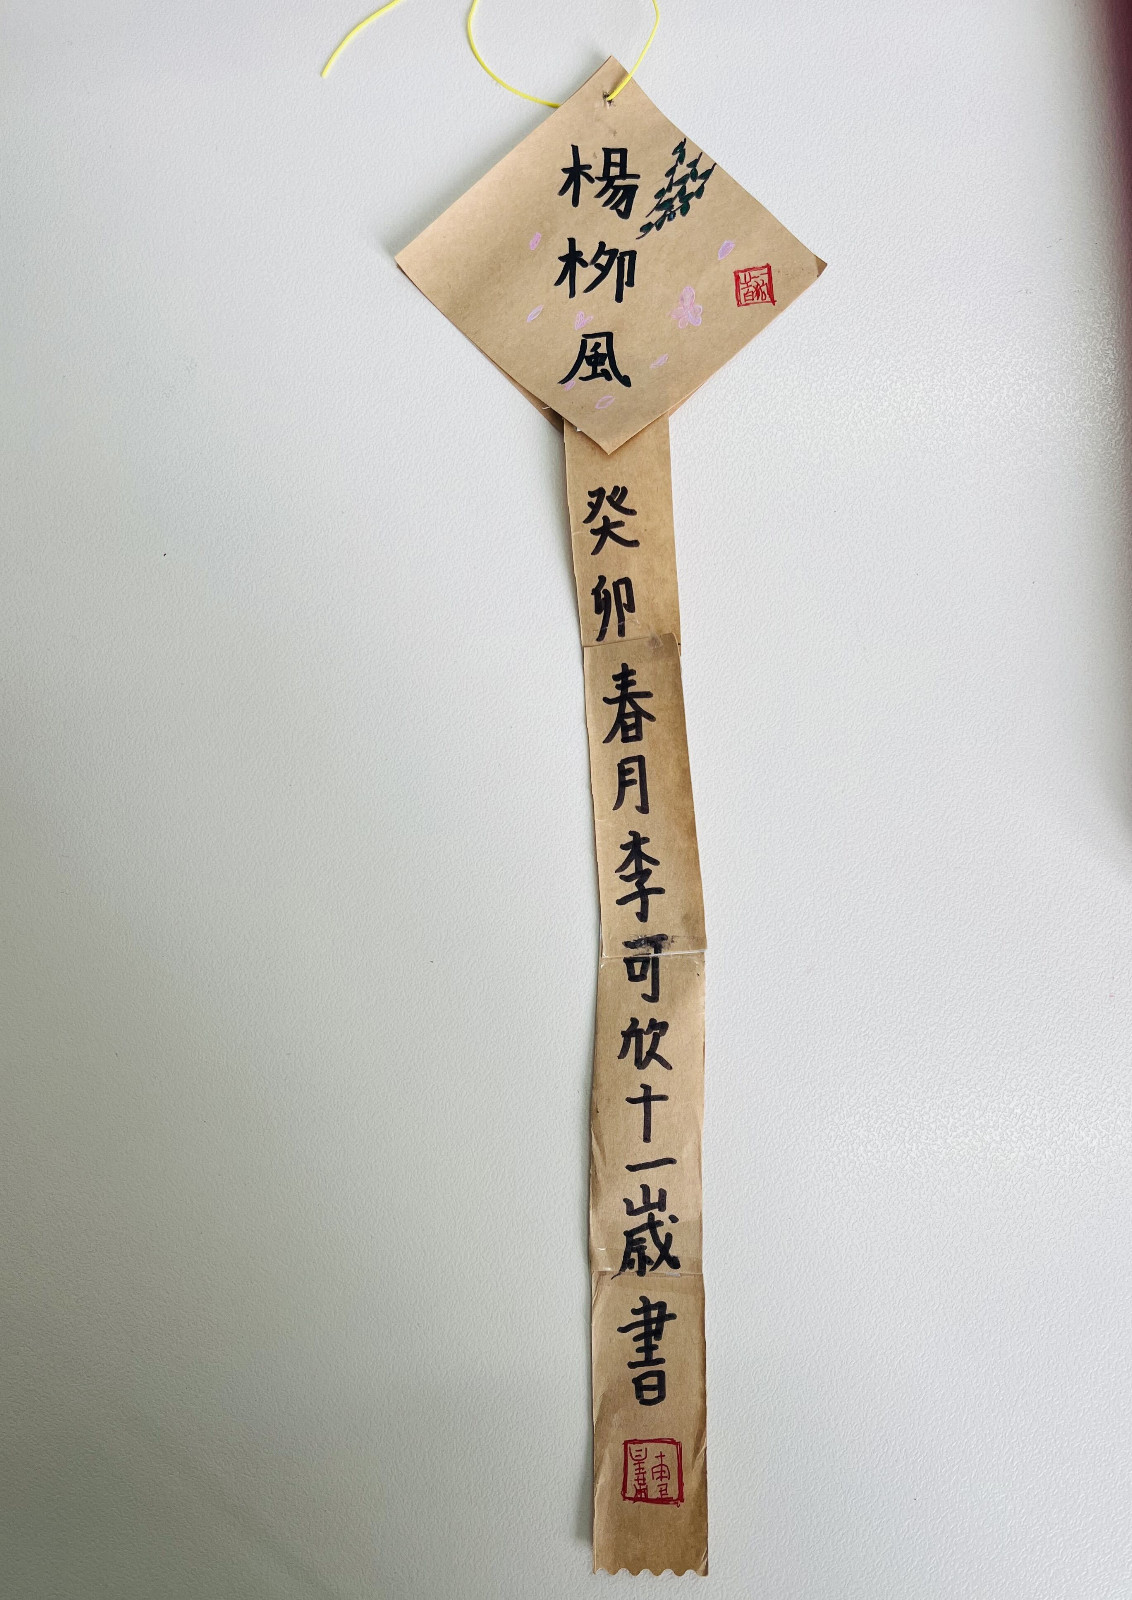 楊柳風
癸卯春月李可欣十一歲書